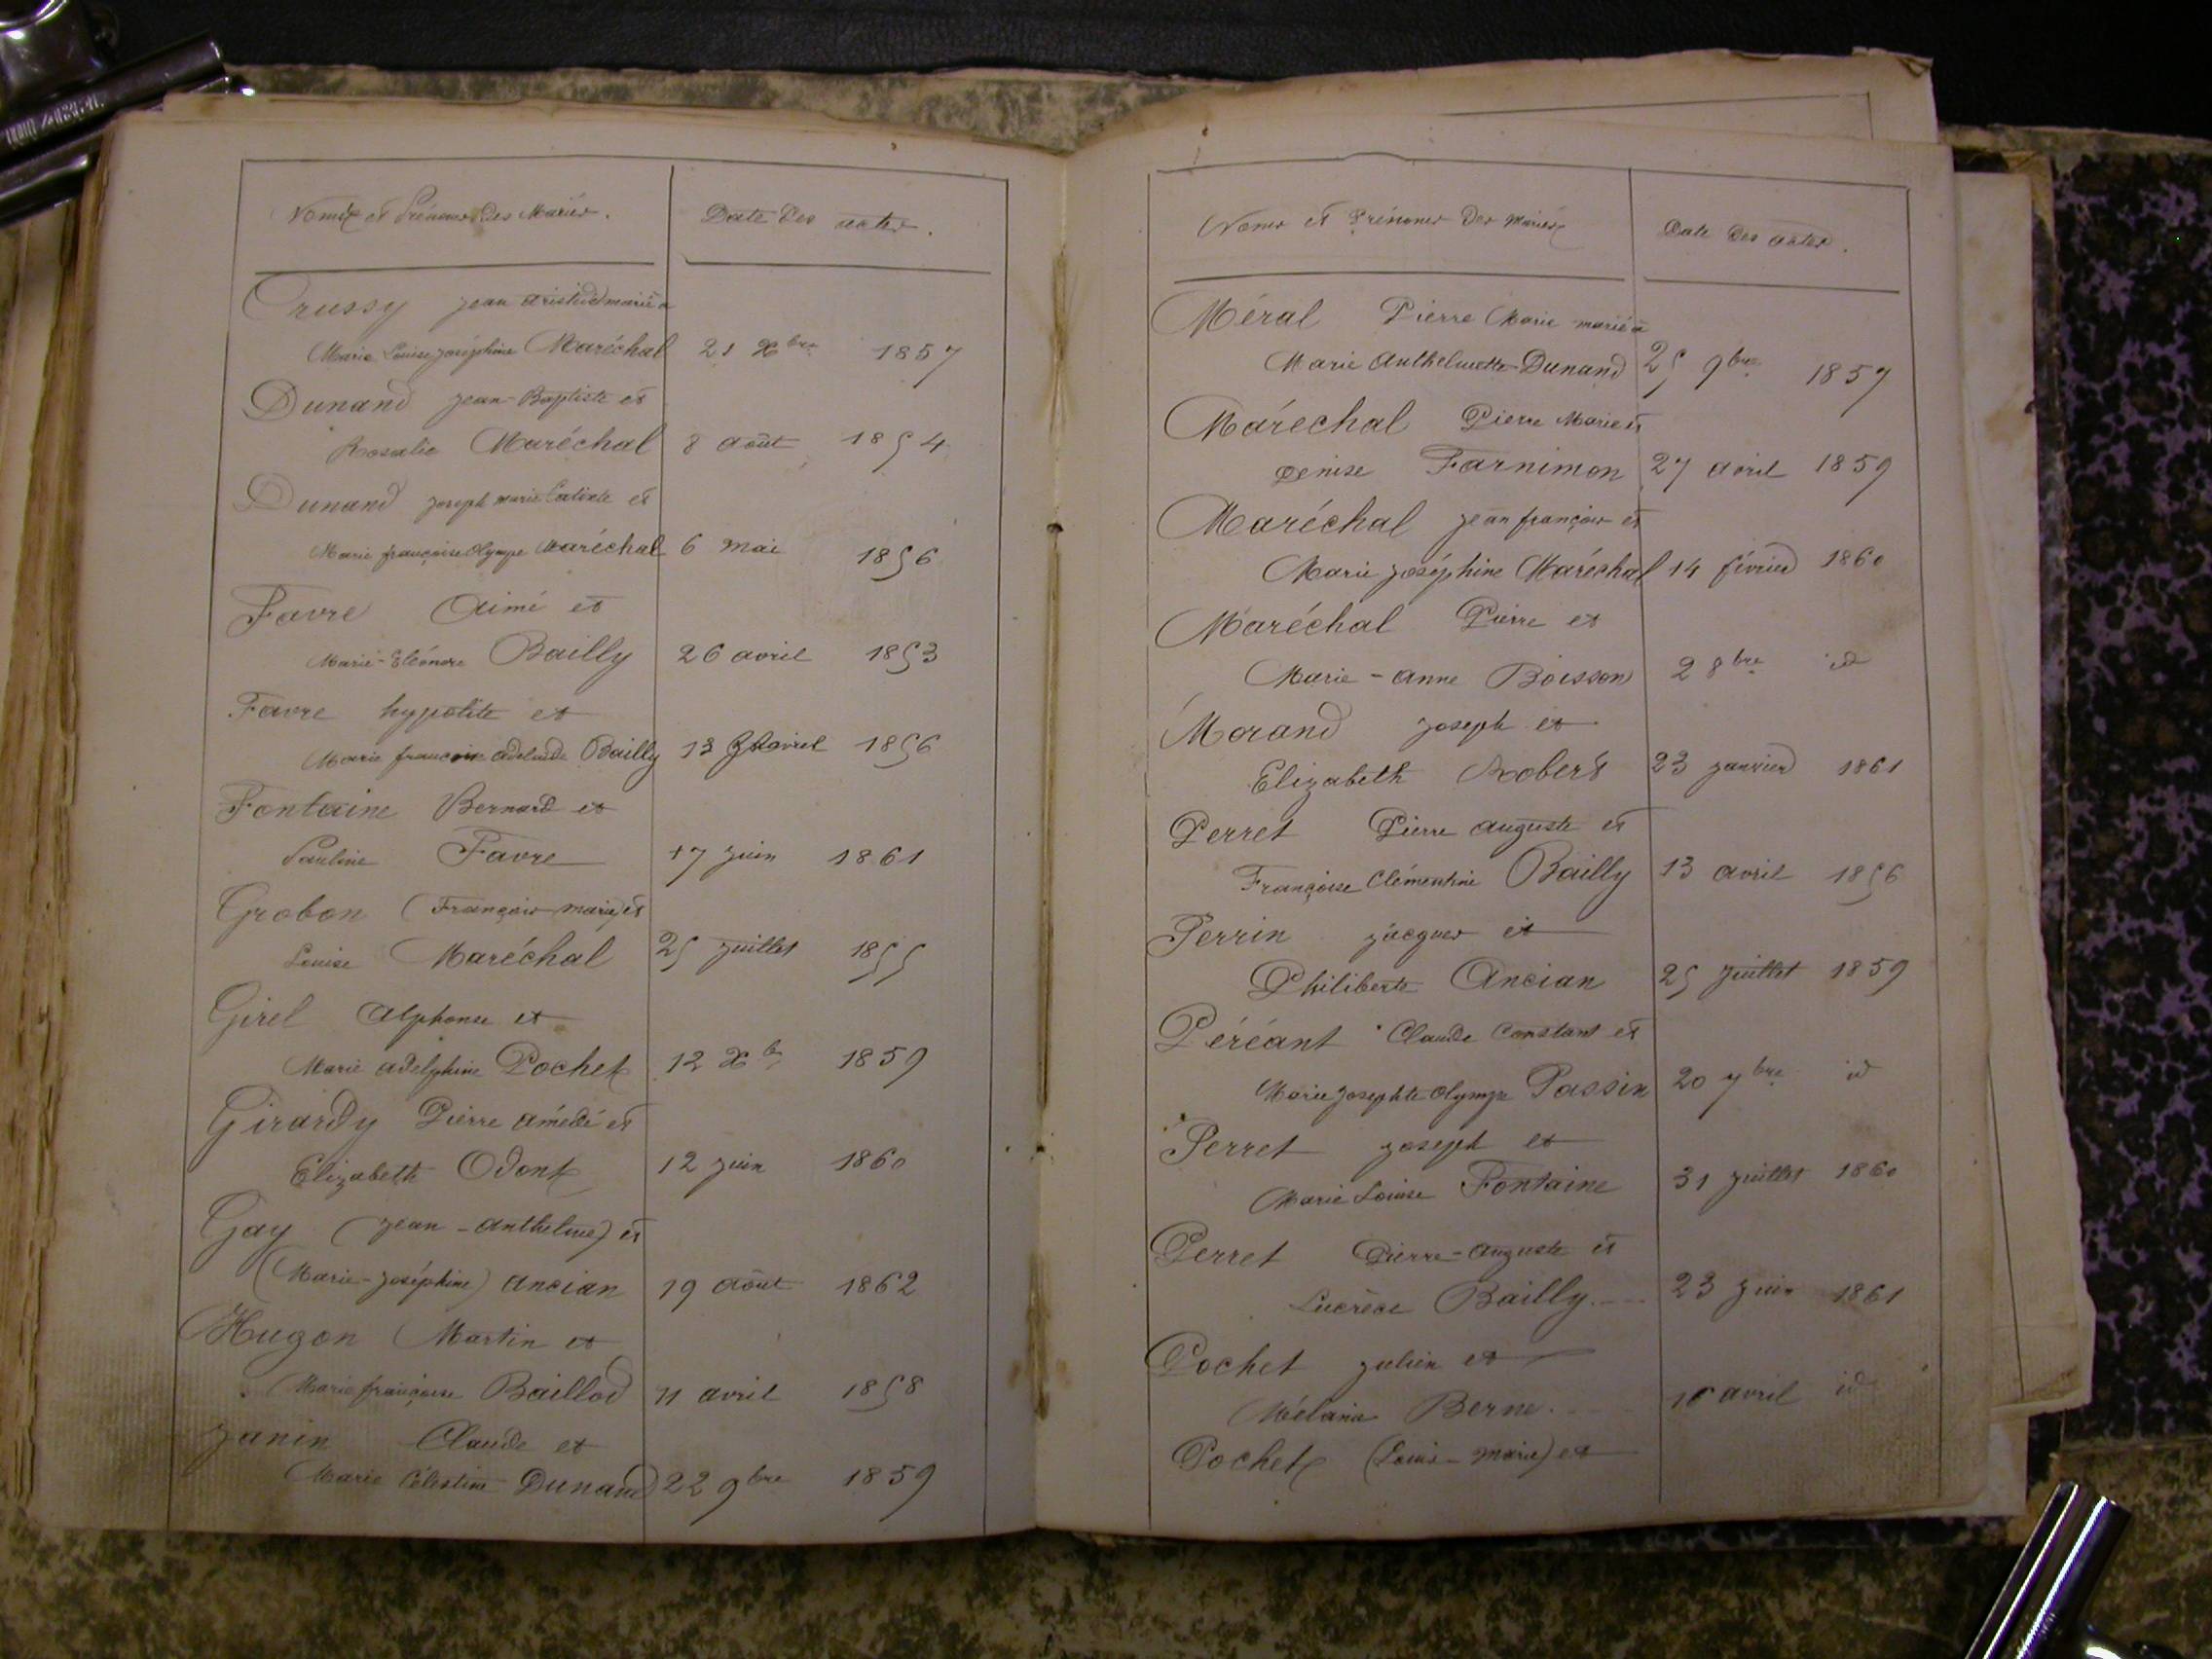 Noms et Prénoms des Mariés. Date des actes.
Crussy jean aristide marié a
Marie Louise joséphine Maréchal 21 Xbre 1857
Dunand jean-Baptiste et
Rosalie Maréchal 8 août 1854
Dunand joseph marie Calixte et
Marie françoise Olympe Maréchal 6 mai 1856
Favre Aimé et
Marie-Eléonore Bailly 26 avril 1853
Favre hypolite et
Marie françoise adelaide Bailly 13 avril 1856
Fontaine Bernard et
Pauline Favre 17 juin 1861
Grobon (François marie) et
Louise Maréchal 25 juillet 1855
Girel Alphonse et
Marie adelphine Pochet 12 Xbre 1859
Girardy Pierre amédé et
Elizabeth Odont 12 juin 1860
Gay (jean-anthelme) et
(Marie-joséphine) ancian 19 août 1862
Hugon Martin et
Marie françoise Baillod 11 avril 1858
Janin Claude et
Marie Célestine Dunand 22 9bre 1859
Noms et Prénoms des mariés Date des actes.
Méral Pierre Marie marié a
Marie Anthelmette Dunand 25 9bre 1857
Maréchal Pierre Marie et
Denise Farnimon 27 avril 1859
Maréchal jean françois et
Marie joséphine Maréchal 14 février 1860
Maréchal Pierre et
Marie-anne Boisson 2 8bre id
Morand joseph et
Elizabeth Robert 23 janvier 1861
Perret Pierre auguste et
Françoise Clémentine Bailly 13 avril 1856
Perrin jacques et
Philiberte Ancian 25 juillet 1859
Péréant Claude Constant et
Marie josephte Olympe Passin 20 7bre id
Perret joseph et
Marie Louise Fontaine 31 juillet 1860
Perret Pierre-Auguste et
Lucrèce Bailly 23 juin 1861
Pochet julien et
Mélanie Berne avril id
Pochet (Louis-marie) et